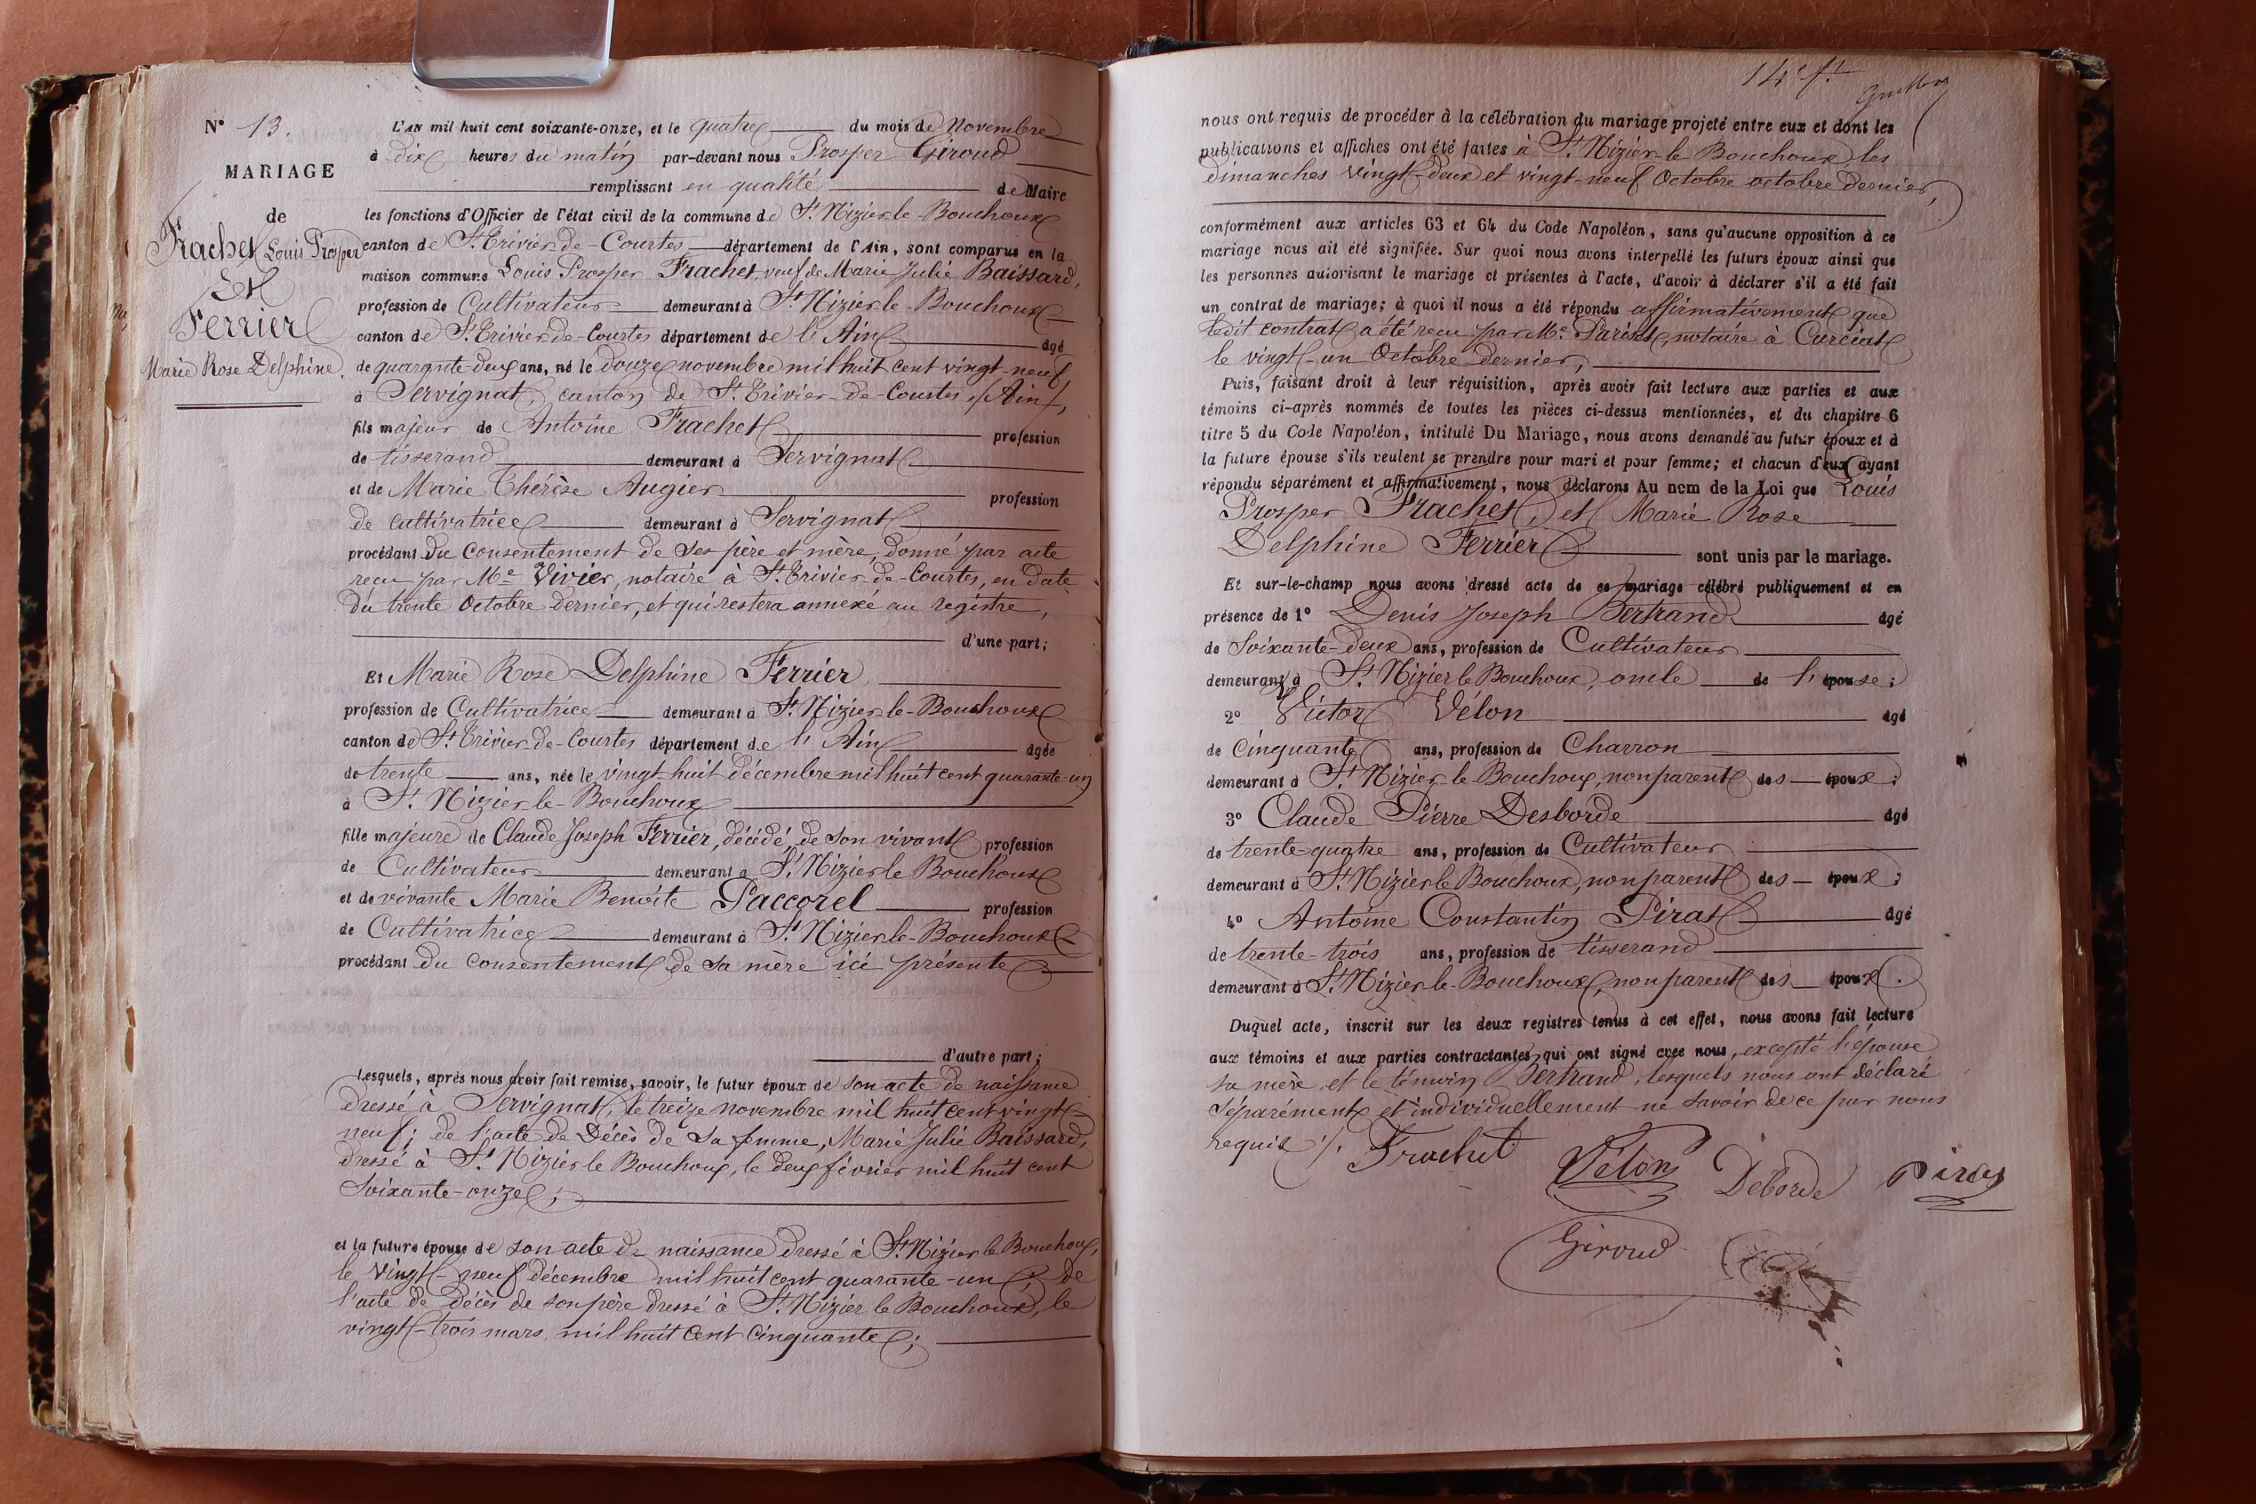 N° 13.
MARIAGE
de
Frachet Louis Prosper
Et
Ferrier
Marie Rose Delphine.
L'AN mil huit cent soixante-onze, et le quatre du mois de Novembre
à dix heures du matin par-devant nous Prosper Giroud
remplissant en qualité de Maire
les fonctions d'Officier de l'état civil de la commune de St. Nizier-le-Bouchoux
canton de St. Trivier-de-Courtes département de l'Ain, sont comparus en la
maison commune Louis Prosper Frachet, veuf de Marie Julie Baissard,
profession de Cultivateur demeurant à St. Nizier-le-Bouchoux
canton de St. Trivier-de-Courtes département de l'Ain âgé
de quarante-deux ans, né le douze novembre mil huit cent vingt-neuf
à Servignat, canton de St. Trivier-de-Courtes (Ain),
fils majeur de Antoine Frachet profession
de tisserand demeurant à Servignat
et de Marie Thérèse Augier profession
de cultivatrice demeurant à Servignat
procédant du consentement de ses père et mère, donné par acte
reçu par Me. Vivier, notaire à St. Trivier-de-Courtes, en date
du trente Octobre dernier, et qui restera annexé au registre,
d'une part;
Et Marie Rose Delphine Ferrier
profession de Cultivatrice demeurant à St. Nizier-le-Bouchoux
canton de St. Trivier-de-Courtes département de l'Ain âgée
de trente ans, née le vingt-huit décembre mil huit cent quarante-un
à St. Nizier-le-Bouchoux
fille majeure de Claude Joseph Ferrier, décédé, de son vivant profession
de Cultivateur demeurant à St. Nizier le Bouchoux
et de vivante Marie Benoite Paccorel profession
de Cultivatrice demeurant à St. Nizier-le-Bouchoux
procédant du consentement de sa mère ici présente
d'autre part;
Lesquels, après nous avoir fait remise, savoir, le futur époux de son acte de naissance
dressé à Servignat, le treize novembre mil huit cent vingt-
neuf; de l'acte de décès de sa femme, Marie Julie Baissard,
dressé à St. Nizier le Bouchoux, le deux février mil huit cent
soixante-onze;
et la future épouse de son acte de naissance dressé à St. Nizier le Bouchoux,
le vingt-neuf décembre mil huit cent quarante-un; de
l'acte de décès de son père dressé à St. Nizier le Bouchoux, le
vingt-trois mars mil huit cent cinquante;
14e f.t
nous ont requis de procéder à la célébration du mariage projeté entre eux et dont les
publications et affiches ont été faites à St. Nizier-le-Bouchoux les
dimanches vingt-deux et vingt-neuf Octobre octobre dernier,
conformément aux articles 63 et 64 du Code Napoléon, sans qu'aucune opposition à ce
mariage nous ait été signifiée. Sur quoi nous avons interpellé les futurs époux ainsi que
les personnes autorisant le mariage et présentes à l'acte, d'avoir à déclarer s'il a été fait
un contrat de mariage; à quoi il nous a été répondu affirmativement que
ledit contrat a été reçu par Me. Pariset, notaire à Curciat
le vingt-un Octobre dernier,
Puis, faisant droit à leur réquisition, après avoir fait lecture aux parties et aux
témoins ci-après nommés de toutes les pièces ci-dessus mentionnées, et du chapitre 6
titre 5 du Code Napoléon, intitulé Du Mariage, nous avons demandé au futur époux et à
la future épouse s'ils veulent se prendre pour mari et pour femme; et chacun d'eux ayant
répondu séparément et affirmativement, nous déclarons Au nom de la Loi que Louis
Prosper Frachet, et Marie Rose
Delphine Ferrier sont unis par le mariage.
Et sur-le-champ nous avons dressé acte de ce mariage célébré publiquement et en
présence de 1° Denis Joseph Bertrand âgé
de Soixante-deux ans, profession de Cultivateur
demeurant à St. Nizier le Bouchoux, oncle de l'épouse;
2° Victor Vélon âgé
de Cinquante ans, profession de Charron
demeurant à St. Nizier-le-Bouchoux, non parent des époux;
3° Claude Pierre Desborde âgé
de trente-quatre ans, profession de Cultivateur
demeurant à St. Nizier le Bouchoux, non parent des époux;
4° Antoine Constantin Pirat âgé
de trente-trois ans, profession de tisserand
demeurant à St. Nizier-le-Bouchoux, non parent des époux.
Duquel acte, inscrit sur les deux registres tenus à cet effet, nous avons fait lecture
aux témoins et aux parties contractantes qui ont signé avec nous, excepté l'épouse
sa mère, et le témoin Bertrand, lesquels nous ont déclaré
séparément et individuellement ne savoir de ce par nous
requis ./.
Frachet Vélon Déborde Pirat
Giroud